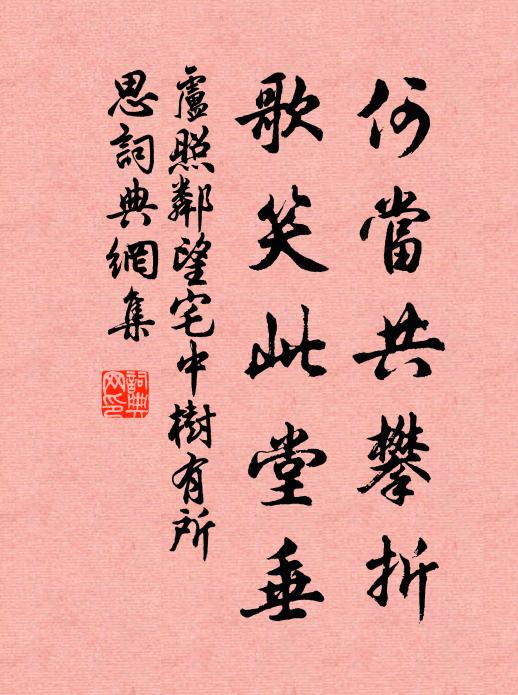 何當共攀折
歌笑此堂垂
盧照鄰望宅中樹有所
思詞典網集
詞典
网印